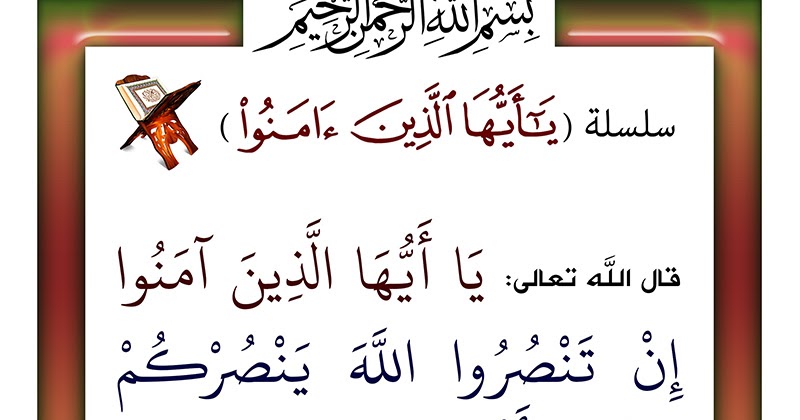 بِسْمِ اللَّهِ الرَّحْمَنِ الرَّحِيمِ
سلسلة (يَـٰٓأَيُّهَا ٱلَّذِينَ ءَامَنُوا۟)
قال اللَّه تعالى: يَا أَيُّهَا الَّذِينَ آمَنُوا
إِنْ تَنْصُرُوا اللَّهَ يَنْصُرْكُمْ